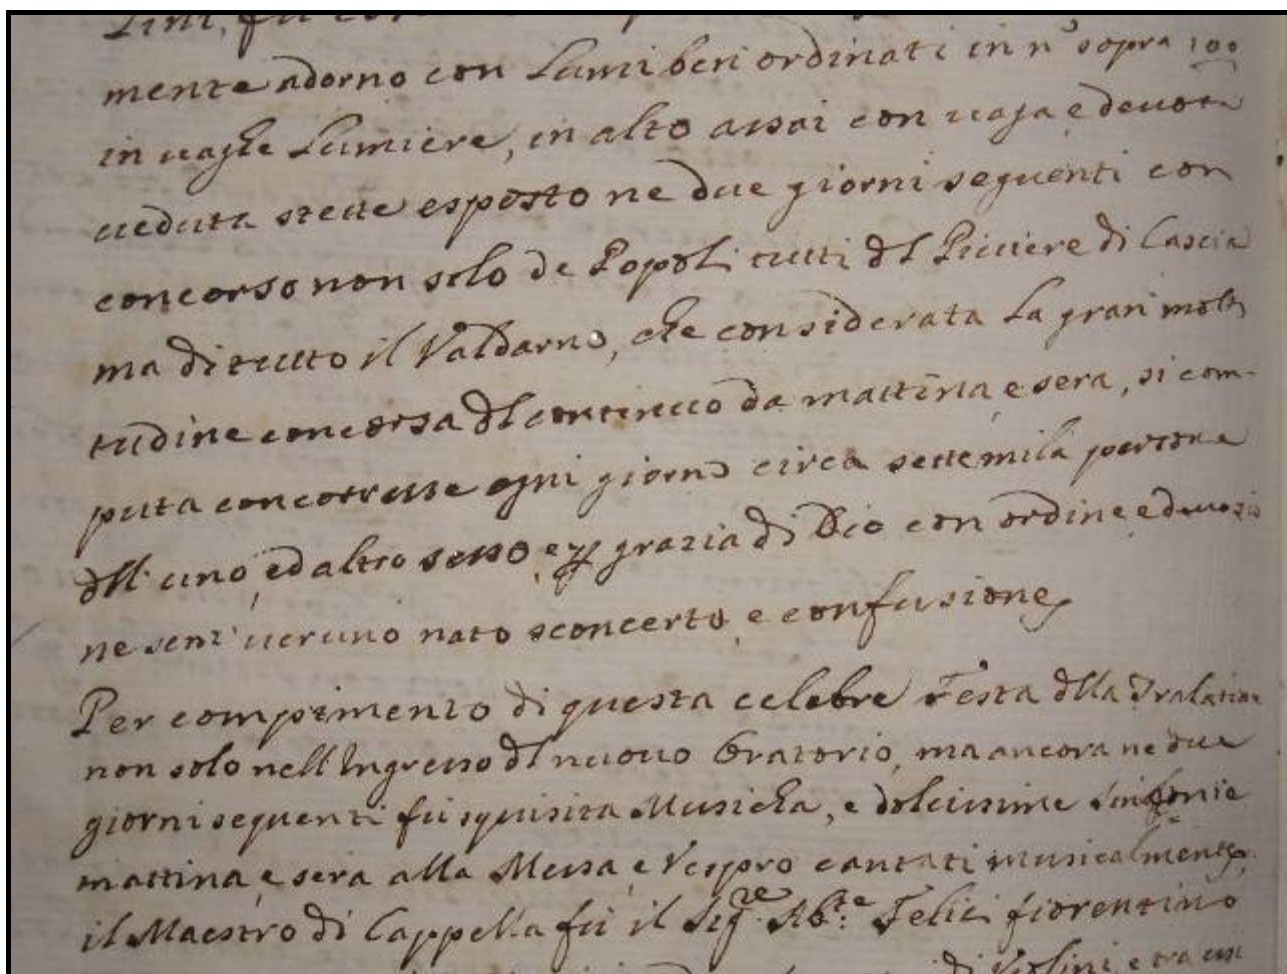 mente adorno con Lumi beri ordinati in n° sopra 100
in uaghe Lumiere, in alto assai con uaga e deuota
ueduta stette esposto ne due giorni seguenti con
concorso non solo de Popoli tutti dl Piuiere di Cascia
ma di tutto il Valdarno, che considerata La gran molti
tudine concorsa dl continuo da mattina e sera, si com-
puta concorresse ogni giorno circa settemila persone
dll'uno, ed altro sesso e grazia di Dio con ordine e deuozio
ne senz'ueruno nato sconcerto e confusione
Per compimento di questa celebre Festa dlla Tralatione
non solo nell'Ingresso dl nuouo Oratorio, ma ancora ne due
giorni sequenti fu squisita Musicha, e dolcissime Sinfonie
mattina, e sera alla Messa, e Vespro cantati musicalmente
il Maestro di Cappella fù il Sigre Abte Felici fiorentino
di Violini e tra essi